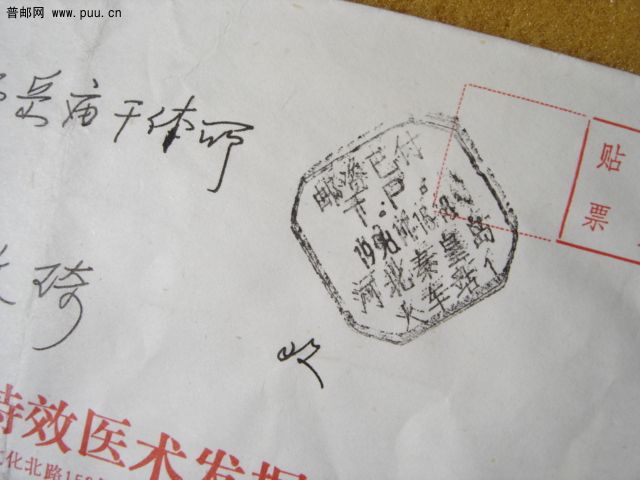 普邮网 www.puu.cn
岳庙干休所
琦
邮资已付
T.P.
河北秦皇岛
火车站1
贴
票
特效医术发掘
化北路15